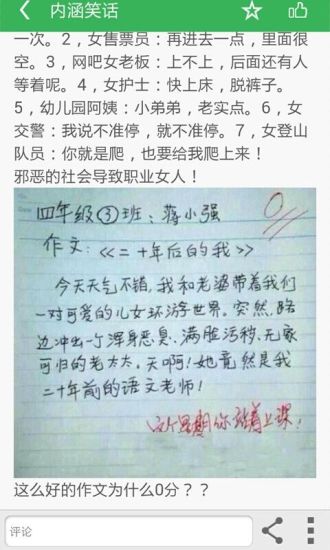 内涵笑话
一次。2，女售票员：再进去一点，里面很
空。3，网吧女老板：上不上，后面还有人
等着呢。4，女护士：快上床，脱裤子。
5，幼儿园阿姨：小弟弟，老实点。6，女
交警：我说不准停，就不准停。7，女登山
队员：你就是爬，也要给我爬上来！
邪恶的社会导致职业女人！
四年级③班：蒋小强
0
作文：《二十年后的我》
今天天气不错，我和老婆带着我们
一对可爱的儿女环游世界。突然，路
边冲出一个浑身恶臭、满脸污秽、无家
可归的老太太。天啊！她竟然是我
二十年前的语文老师！
这个星期你站着上课！
这么好的作文为什么0分？？
评论